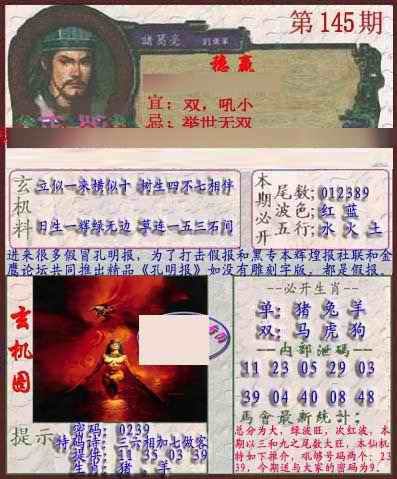 第145期
諸葛亮
劉伯軍
稳赢
宜：双，吼小
忌：举世无双
玄机料
立似一来横似十 树生四不七相拌
日生一辉绿无边 草连一五三石间
本期必开
尾数;012389
波色;红 蓝
五行;水 火 土
进来很多假冒孔明报，为了打击假报和黑专本辉煌报社联和金
鹰论坛共同推出精品《孔明报》如没有雕刻字版，都是假报。
玄机图
提示
密码：0239
特码读：三六相加七做客
提供：11 35 03 39
生肖：猪 羊
必开生肖
单：猪 兔 羊
双：马 虎 狗
内部泄码
11 23 05 29 03
39 04 40 08 48
馬會最新統计：
总分为大，绿波旺，次红波，本
期以三和九之尾数大旺，本仙机
特如下操作，吼够号码两个：23
39，今期送与大家的密码为9。